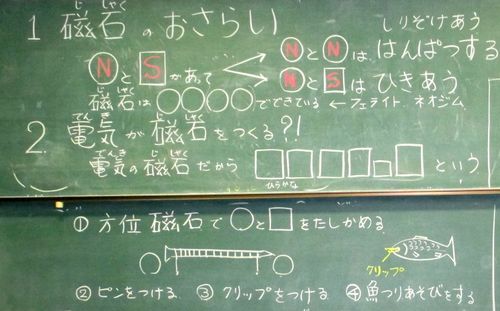 1 磁石のおさらい
じ しゃく
しりぞけあう
NとSがあって
NとNははんぱつする
NとSはひきあう
じ しゃく
磁石は○○○○でできている ←フェライト ネオジム
でん き じ しゃく
2 電気が磁石をつくる?!
でんき じ しゃく
電気の磁石だから□□□□□□という
ひらがな
① 方位磁石で○と□をたしかめる
クリップ
② ピンをつける ③ クリップをつける ④ 魚つりあそびをする